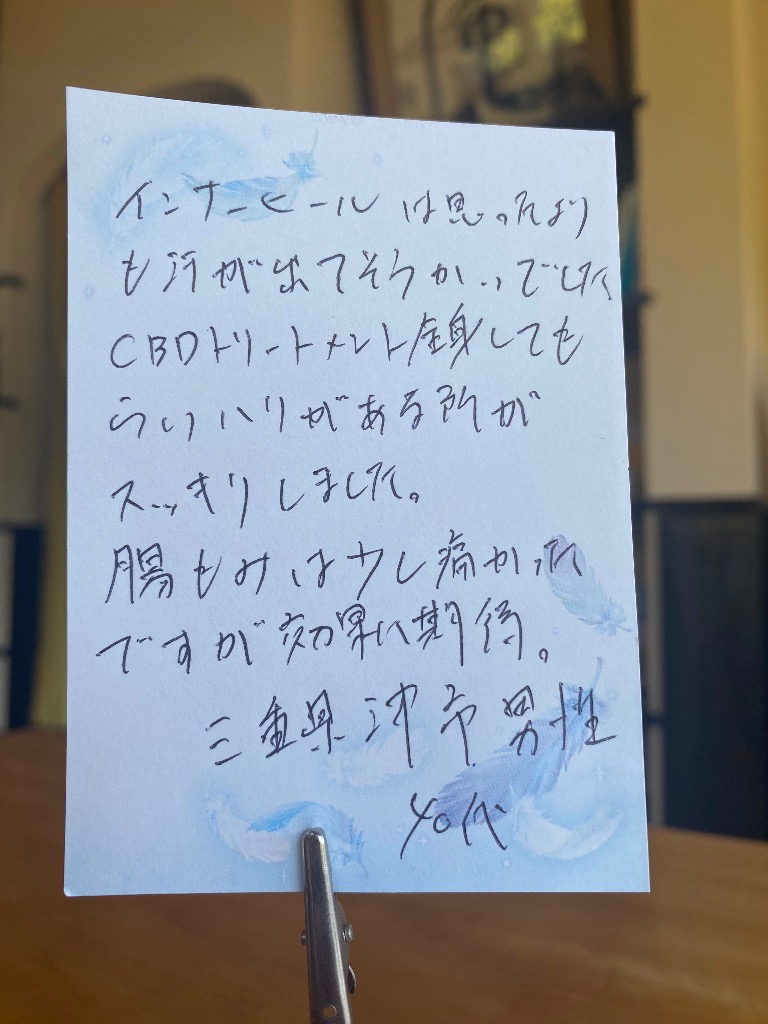 インナーヒールは思ったより
も汗が出てそうかいでした
CBDトリートメント全身しても
らいハリがある所が
スッキリしました。
腸もみは少し痛かった
ですが効果に期待。
三重県 津市 男性
40代